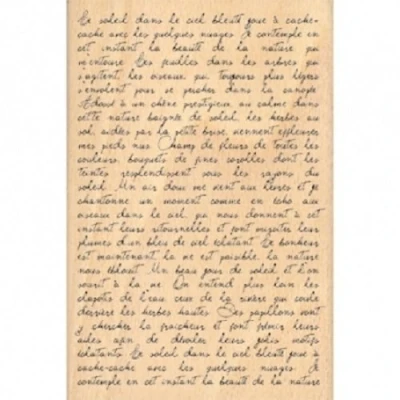 Le soleil dans le ciel bleuté joue à cache-
cache avec les quelques nuages. Je contemple en
cet instant la beauté de la nature qui
m'entoure. Les feuilles dans les arbres qui
s'agitent, les oiseaux qui, toujours plus légers
s'envolent pour se percher dans la canopée.
Adossé à un chêne prestigieux, au calme dans
cette nature baignée de soleil, les herbes au
sol, aidées par la petite brise, viennent effleurer
mes pieds nus. Champ de fleurs de toutes les
couleurs, bouquets de fines corolles dont les
teintes resplendissent sous les rayons du
soleil. Un air doux me vient aux lèvres et je
chantonne un moment comme en écho aux
oiseaux dans le ciel, qui nous donnent à cet
instant leurs ritournelles et font miroiter leurs
plumes d'un bleu de ciel éclatant. Le bonheur
est maintenant, la vie est paisible, la nature
nous éblouit. Un beau jour de soleil et l'on
sourit à la vie. On entend plus loin les
clapotis de l'eau, ceux de la rivière qui coule
derrière les herbes hautes. Des papillons vont
y chercher la fraicheur et font frémir leurs
ailes afin de dévoiler leurs jolis motifs
éclatants. Le soleil dans le ciel bleuté joue à
cache-cache avec les quelques nuages. Je
contemple en cet instant la beauté de la nature